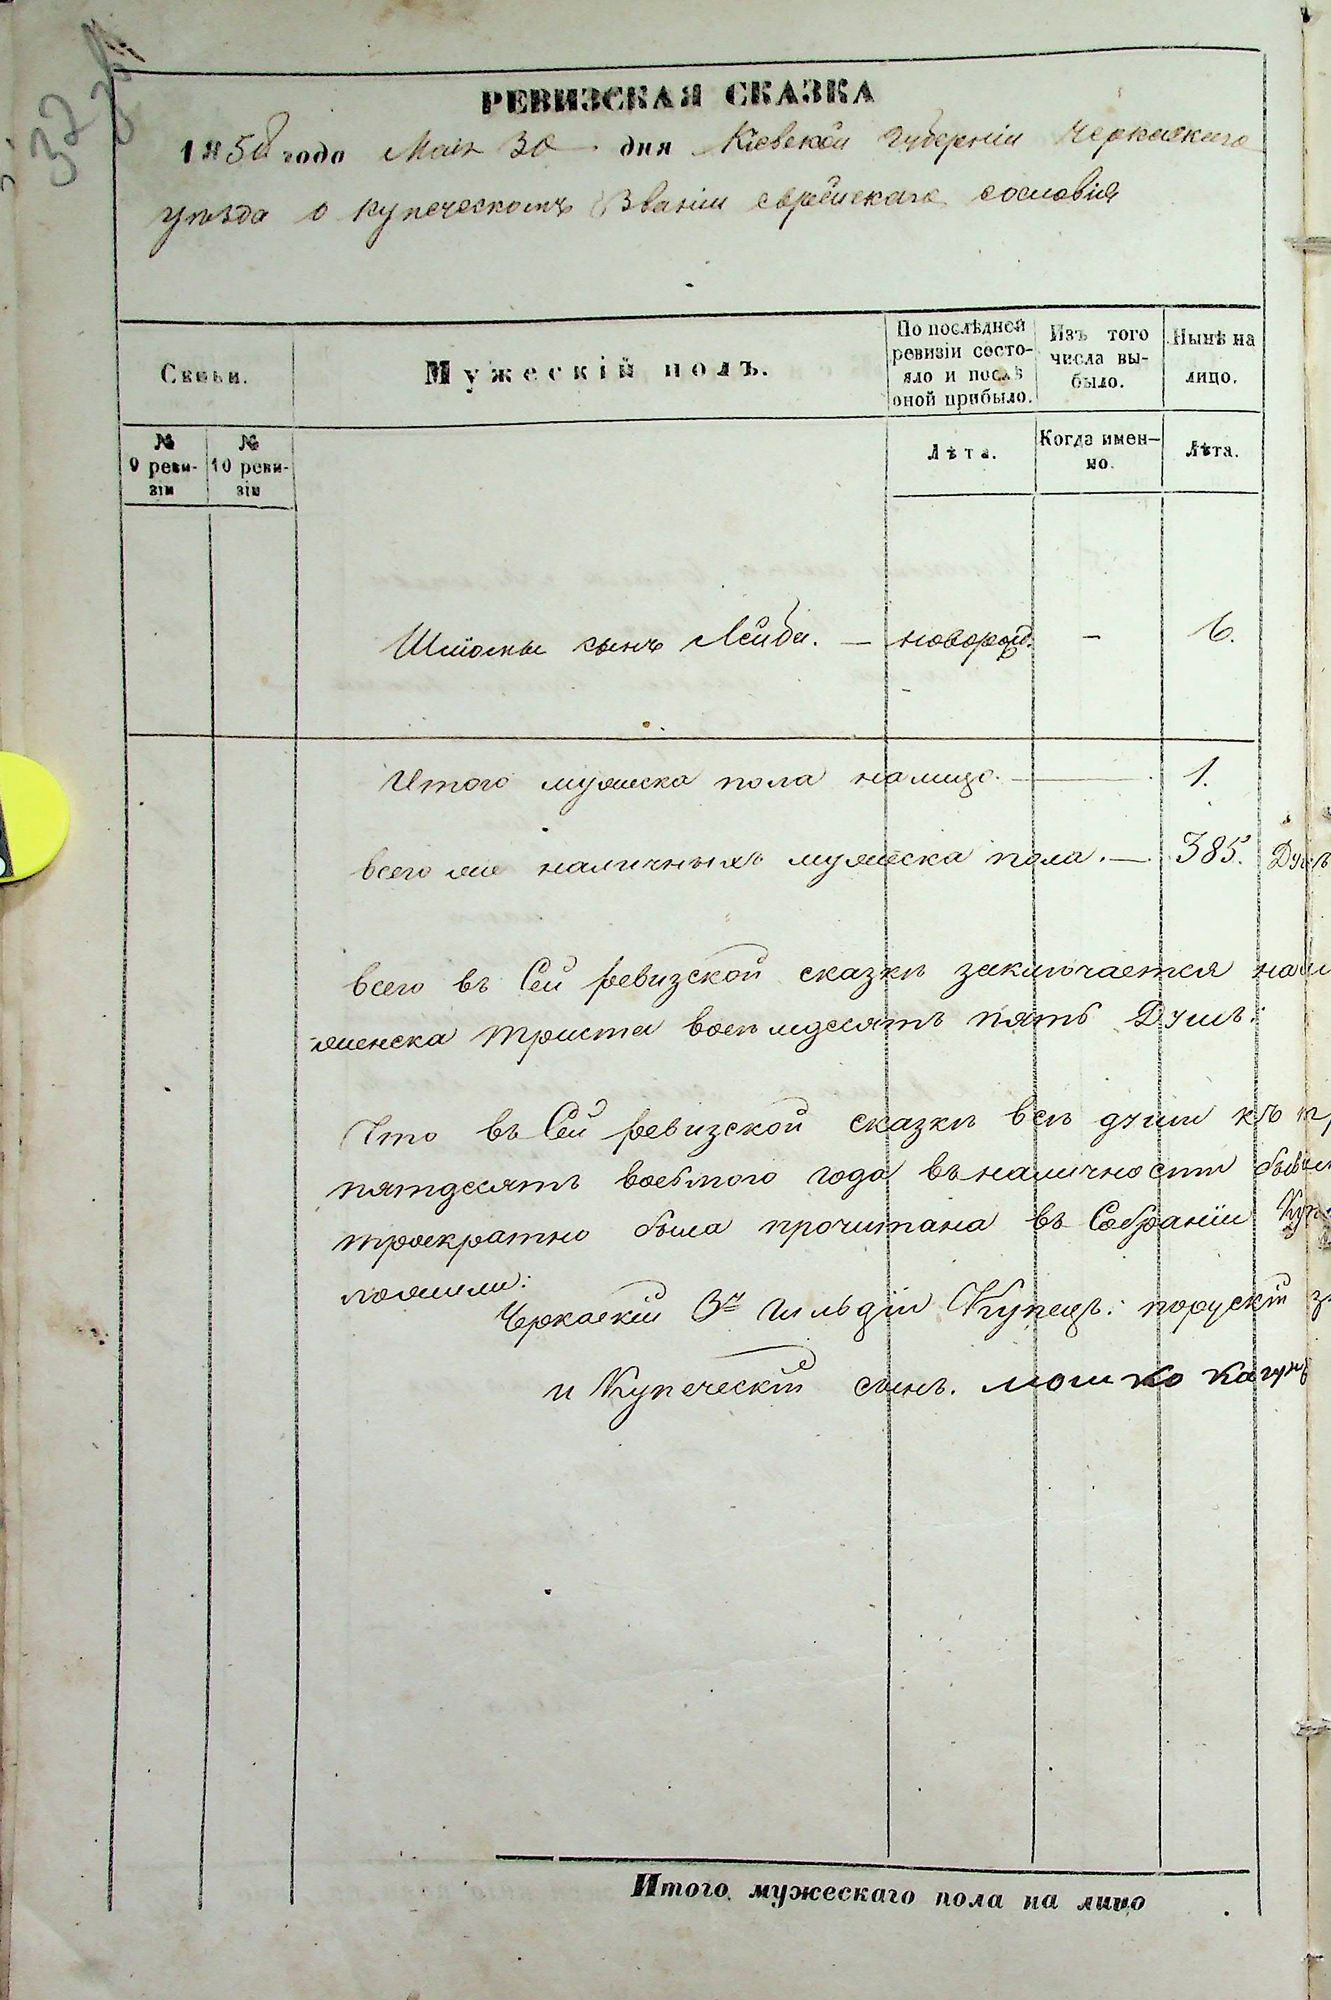 РЕВИЗСКАЯ СКАЗКА
1858 года Мая 30 дня Кіевской губерніи Черкаскаго
уѣзда о купеческомъ Званіи еврейскаго сословія
Семьи.
Мужескій полъ.
По послѣдней ревизіи состояло и послѣ оной прибыло.
Изъ того числа выбыло.
Нынѣ на лицо.
№ 9 ревизіи
№ 10 ревизіи
Лѣта.
Когда именно.
Лѣта.
сынъ Лейба. — новорожд. — 6.
Итого мужеска пола налицо. — 1.
всего же наличныхъ мужеска пола. — 385. Душъ
всего въ Сей ревизской сказкѣ заключается
женска триста восемдесятъ пять Душъ.
Что въ Сей ревизской сказкѣ всѣ души къ
пятдесятъ восьмого года въ наличности
троекратно была прочитана въ Собраніи
Черкаскій 3й гильдіи Купецъ: порускій
и Купеческій сынъ. мошко каганъ
Итого мужескаго пола на лицо